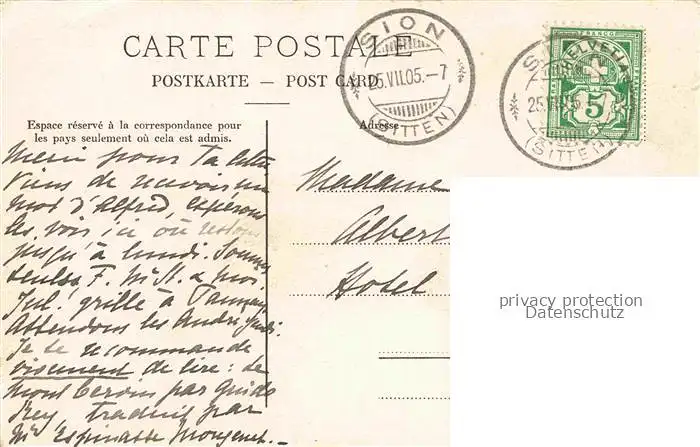 CARTE POSTALE
POSTKARTE — POST CARD
Espace réservé à la correspondance pour
les pays seulement où cela est admis.
Adresse
SION
25.VII.05.–7
(SITTEN)
SION
25.VII.05
(SITTEN)
FRANCO
HELVETIA
5
Merci pour ta lettre
Viens de recevoir un
mot d'Alfred, espérons
les voir ici où restons
jusqu'à lundi. Sommes
seules, F. & moi.
Jul. grille à
Attendons les André
Je te recommande
vivement de lire : Le
mont Cervin par Guido
Rey traduit par
Mme Espinasse Mongenet.–
Madame
Albert
Hotel
privacy protection
Datenschutz